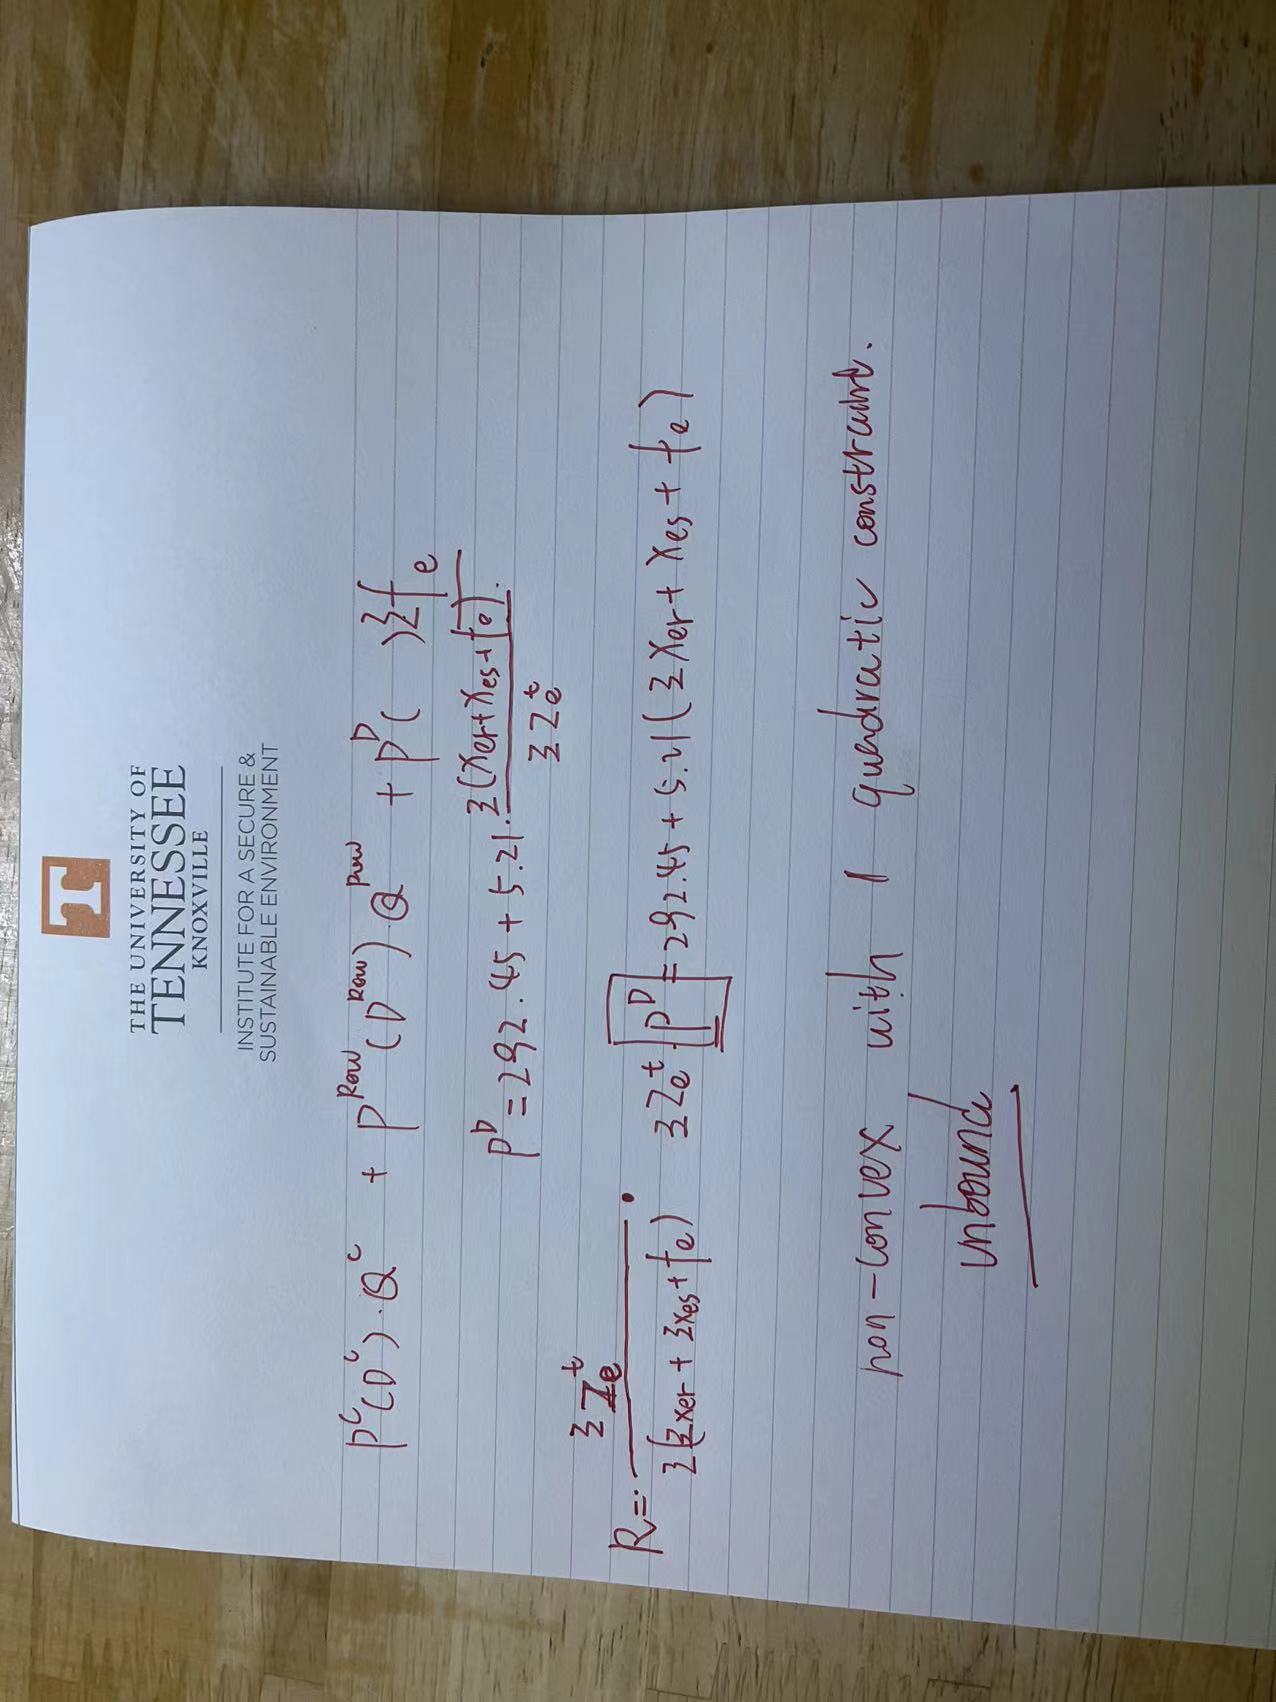 T
THE UNIVERSITY OF
TENNESSEE
KNOXVILLE
INSTITUTE FOR A SECURE &
SUSTAINABLE ENVIRONMENT
P^C(D^C)·Q^C + P^Row(D^Row)·Q^Row + P^D( )Σf_e
P^D = 292.45 + 5.21 · Σ(x_er + x_es + f_e) / ΣZ_e^t
R = ΣZ_e^t / Σ(Σx_er + Σx_es + f_e) · ΣZ_e^t · P^D = 292.45 + 5.21(Σx_er + x_es + f_e)
non-convex with 1 quadratic constraint.
unbound